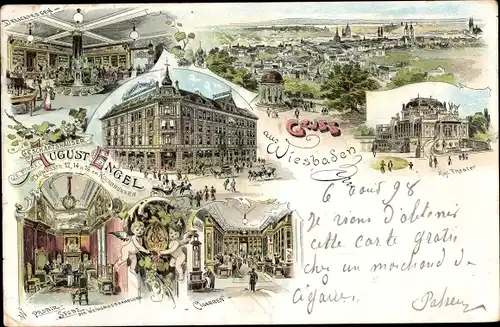 DELICATESSEN
GESCHÄFTSHAUS
AUGUST ENGEL
12, 14, 16
GRUSS
aus Wiesbaden
Kgl. Theater
PROBIR-
STUBE
DER WEINGROSSHANDLUNG
CIGARREN
6 aout 98
Je viens d'obtenir
cette carte gratis
chez un marchand de
cigares